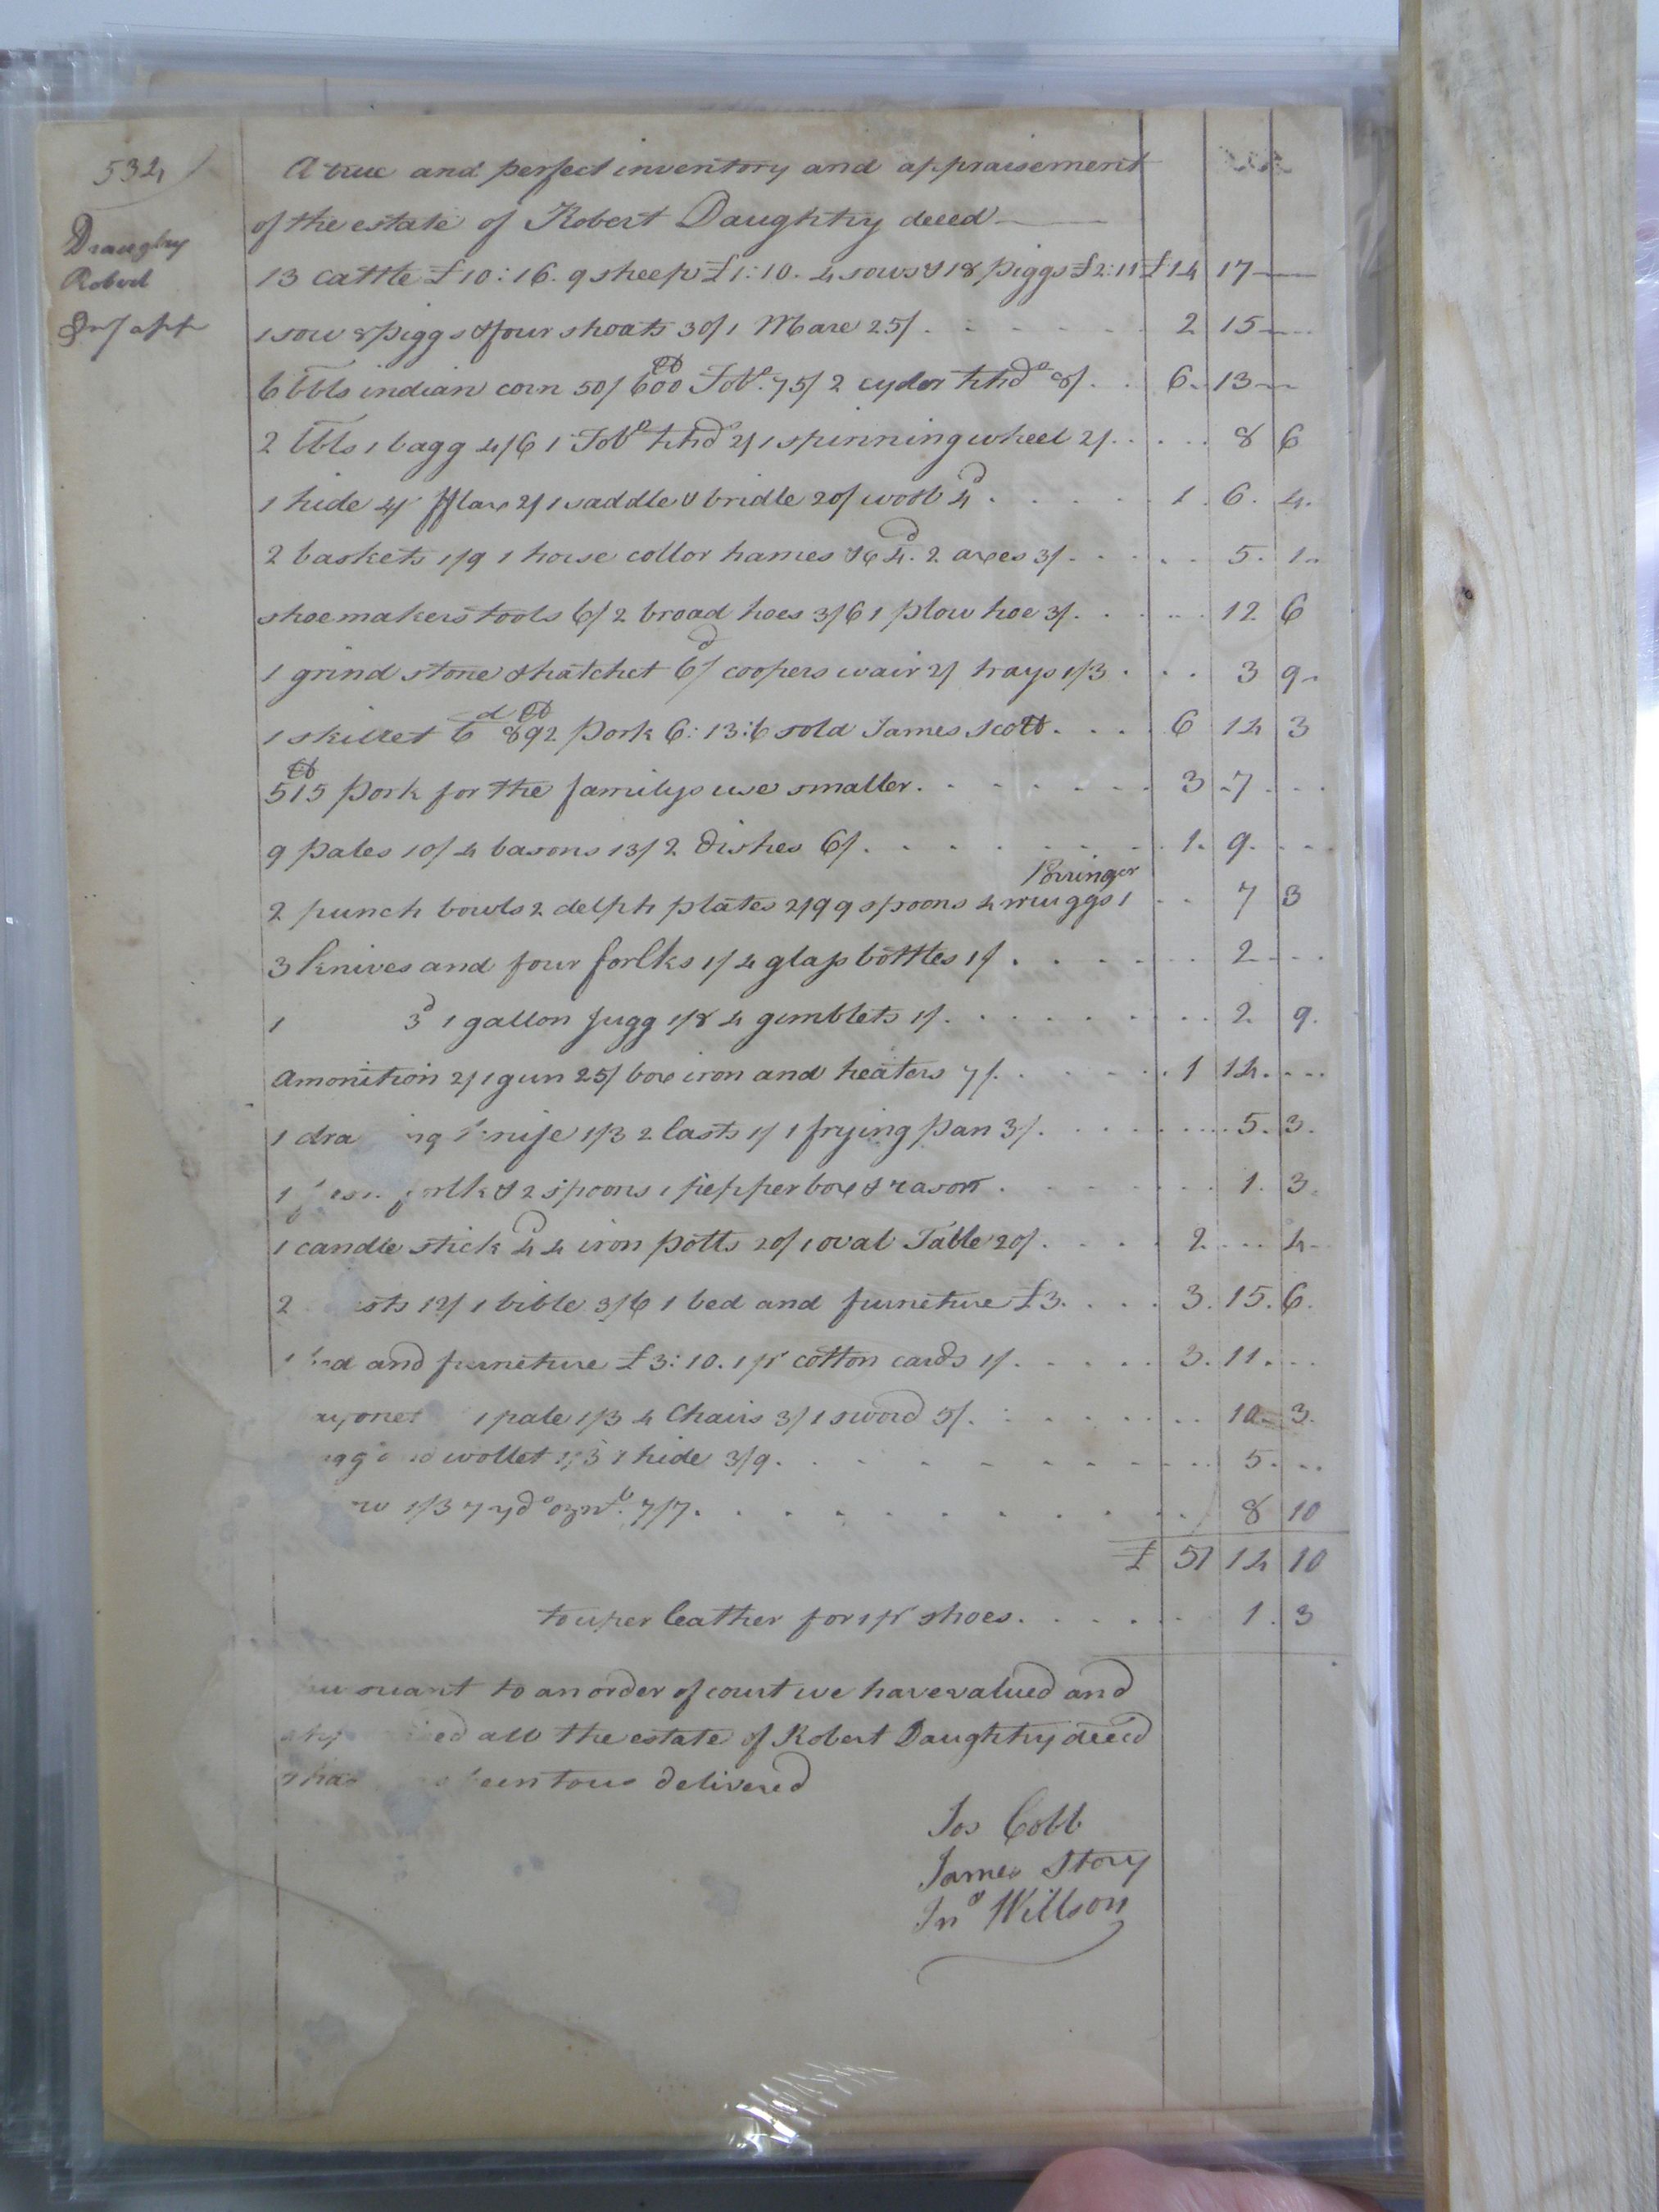 534
Draughry
Robert
Inv app
A true and perfect inventory and appraisement
of the estate of Robert Daughtry deced
13 cattle £10:16. 9 sheep £1:10. 4 sows & 18 piggs £2:11 £14 17
1 sow 8 piggs & four shoats 30/1 Mare 25/. 2 15
6 bbls indian corn 50/ 600 lb Tobo. 75/ 2 cyder hhds 8/. 6. 13
2 bbls 1 bagg 4/6 1 Tobo hhd 2/ 1 spinning wheel 2/. 8 6
1 hide 4/ fflax 2/ 1 saddle & bridle 20/ wool 4d. 1. 6. 4.
2 baskets 1/9 1 horse collor hames &c 4d. 2 axes 3/. 5. 1
shoemakers tools 6/ 2 broad hoes 3/6 1 plow hoe 3/. 12 6
1 grind stone & hatchet 6d/ coopers wair 2/ trays 1/3. 3 9
1 skillet 6d 892 lb pork 6:13:6 sold James Scott. 6 14 3
515 lb pork for the familys use smaller. 3 7
9 pales 10/ 4 basons 13/ 2 dishes 6/. 1. 9.
2 punch bowls 2 delph plates 2/9 9 spoons 4 muggs 1 Porringer 7 3
3 knives and four forlks 1/ 4 glass bottles 1/. 2
1 3d 1 gallon jugg 1/8 4 gimblets 1/. 2 9.
Amonition 2/ 1 gun 25/ box iron and heaters 7/. 1 14.
1 dra ing knife 1/3 2 lasts 1/ 1 frying pan 3/. 5. 3.
1 forlk & 2 spoons 1 pepper box & rason. 1. 3.
1 candle stick 4d 4 iron potts 20/ 1 oval Table 20/. 2. 4
2 sts 12/ 1 bible 3/6 1 bed and furneture £3. 3. 15. 6.
1 bed and furneture £3:10. 1 pr cotton cards 1/. 3. 11.
ayonet 1 pale 1/3 4 Chairs 3/ 1 sword 5/. 10 3.
agg and wollet 1/3 1 hide 3/9. 5.
1/3 7 yds oznb. 7/7. 8 10
£ 51 14 10
to uper leather for 1 pr shoes. 1. 3
Pursuant to an order of court we have valued and
ap ised all the estate of Robert Daughtry deced
tha has been to us delivered
Jos Cobb
James Story
Jno Willson